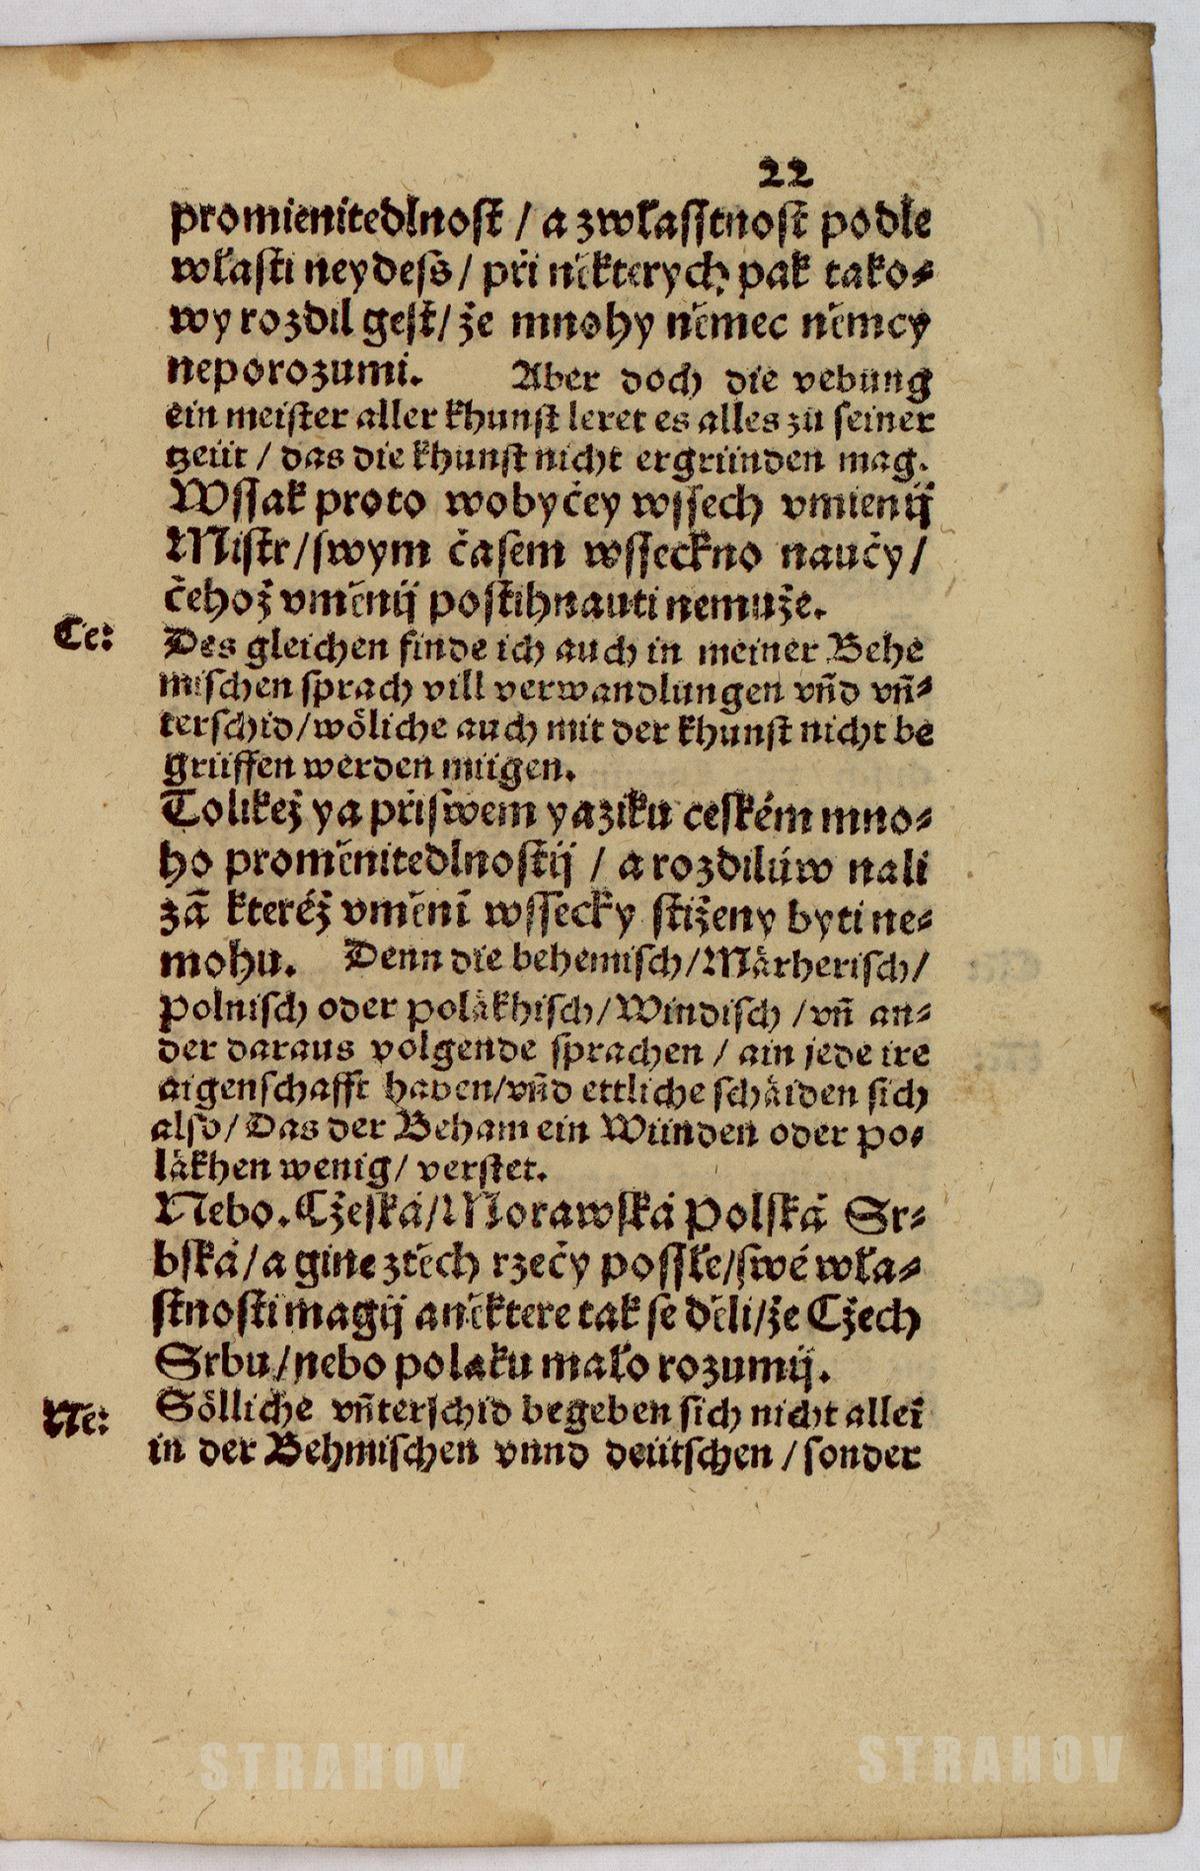 22
promienitedlnost / a zwłasstnost podłe
własti neydess / při některych pak tako⸗
wy rozdil gest / že mnohy němec němcy
neporozumi. Aber doch die vebung
ein meister aller khunst leret es alles zü seiner
tzeüt / das die khunst nicht ergründen mag.
Wssak proto wobyčey wssech vmienij
Mistr / swym časem wsseckno naučy /
čehož vměnij postihnauti nemuže.
Ce: Des gleichen finde ich auch in meiner Behe
mischen sprach vill verwandlungen vñd vñ⸗
terschid / wöliche auch mit der khunst nicht be
grüffen werden mügen.
Tolikež ya při swem yaziku ceském mno⸗
ho proměnitedlnostij / a rozdilúw nali
zã kteréž vměnĩ wssecky stiženy byti ne⸗
mohu. Denn die behemisch / Märherisch /
polnisch oder poläkhisch / Windisch / vñ an⸗
der daraus volgende sprachen / ain jede ire
aigenschafft haven / vñd ettliche schäiden sich
also / Das der Beham ein Wünden oder po⸗
läkhen wenig / verstet.
Nebo. Cžeská / Morawská Polská Sr⸗
bská / a gine ztěch rzečy possłe / swé wła⸗
stnosti magij aněktere tak se děli / že Cžech
Srbu / nebo polaku mało rozumij.
Ne: Sölliche vñterschid begeben sich nicht alleĩ
in der Behmischen vnnd deütschen / sonder
STRAHOV STRAHOV